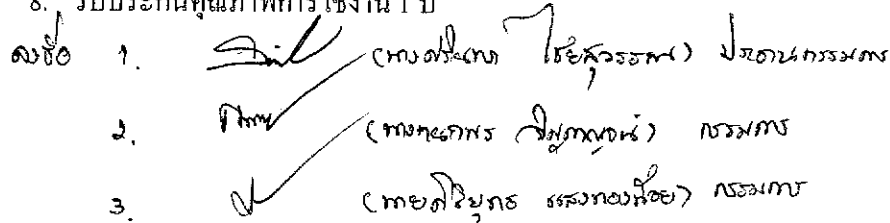 8. รับประกันคุณภาพการใช้งาน 1 ปี
ลงชื่อ 1. (นางศรีนภา ไชยสุวรรณ) ประธานกรรมการ
2. (นาง) กรรมการ
3. (นายศรียุทธ แสงทองน้อย) กรรมการ